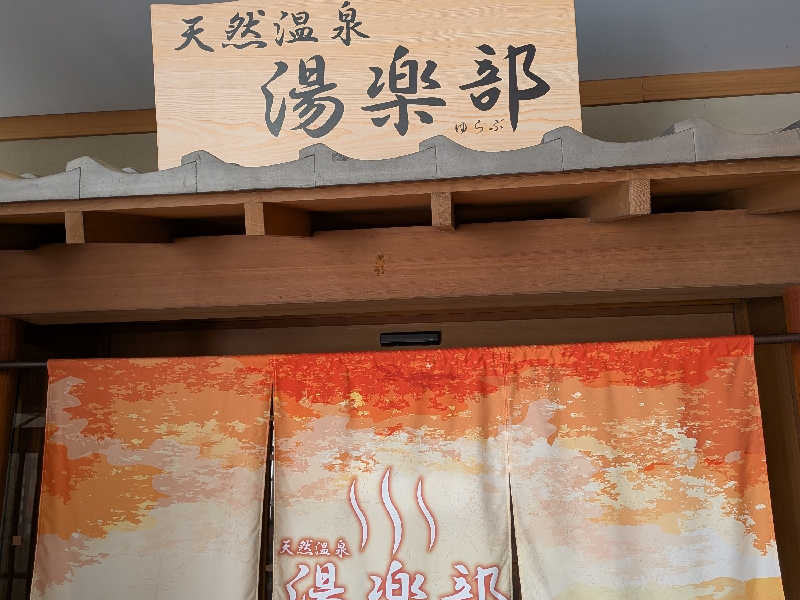 天然温泉
湯楽部
ゆらぶ
天然温泉
湯楽部